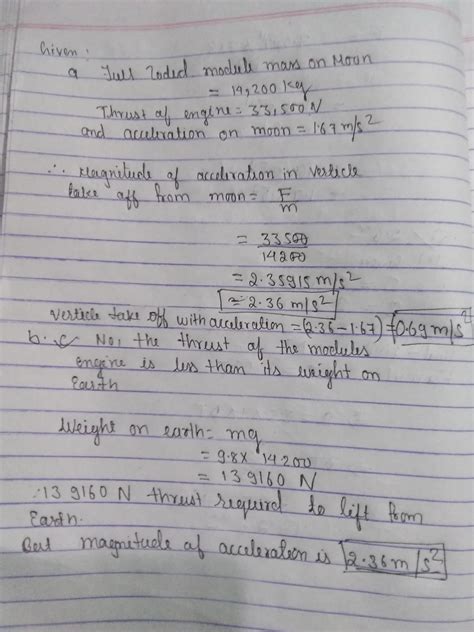 Given:
a Full loded module mass on Moon
= 14,200 kg
Thrust of engine = 33,500 N
and acceleration on moon = 1.67 m/s²
∴ Magnitude of acceleration in verticle
take off from moon = F/m
= 33500/14200
= 2.35915 m/s²
≈ 2.36 m/s²
Verticle take off with acceleration = (2.36 - 1.67) = 0.69 m/s²
b. No, the thrust of the modules
engine is less than its weight on
Earth
Weight on earth = mg
= 9.8 x 14200
= 139160 N
∴ 139160 N thrust required to lift from
Earth.
But magnitude of acceleration is 2.36 m/s²